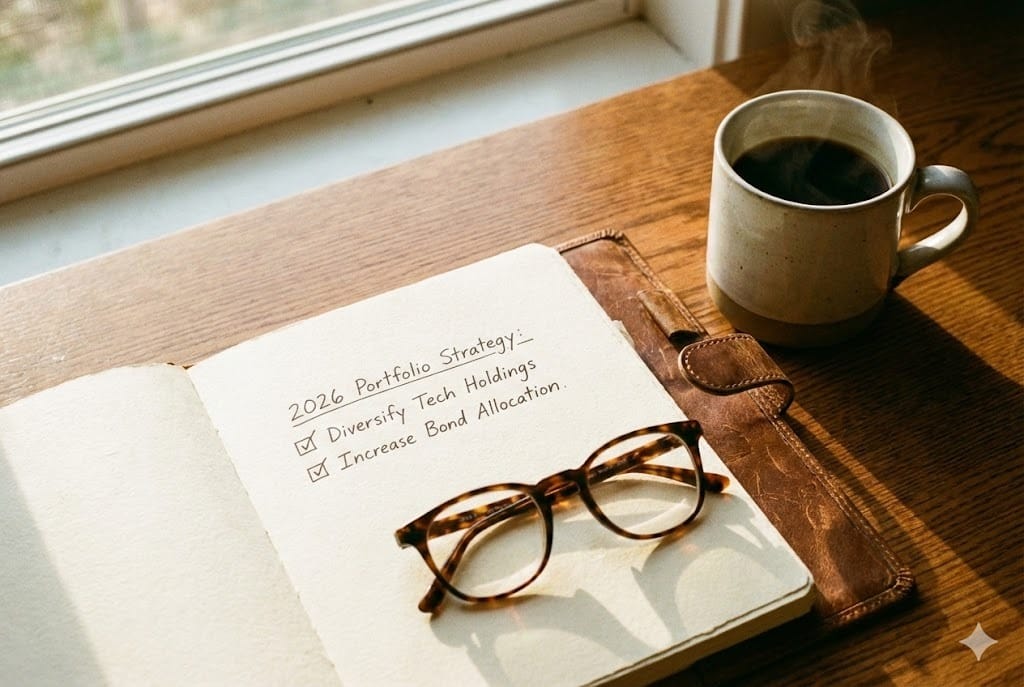 2026 Portfolio Strategy:
☑ Diversify Tech Holdings
☑ Increase Bond Allocation.